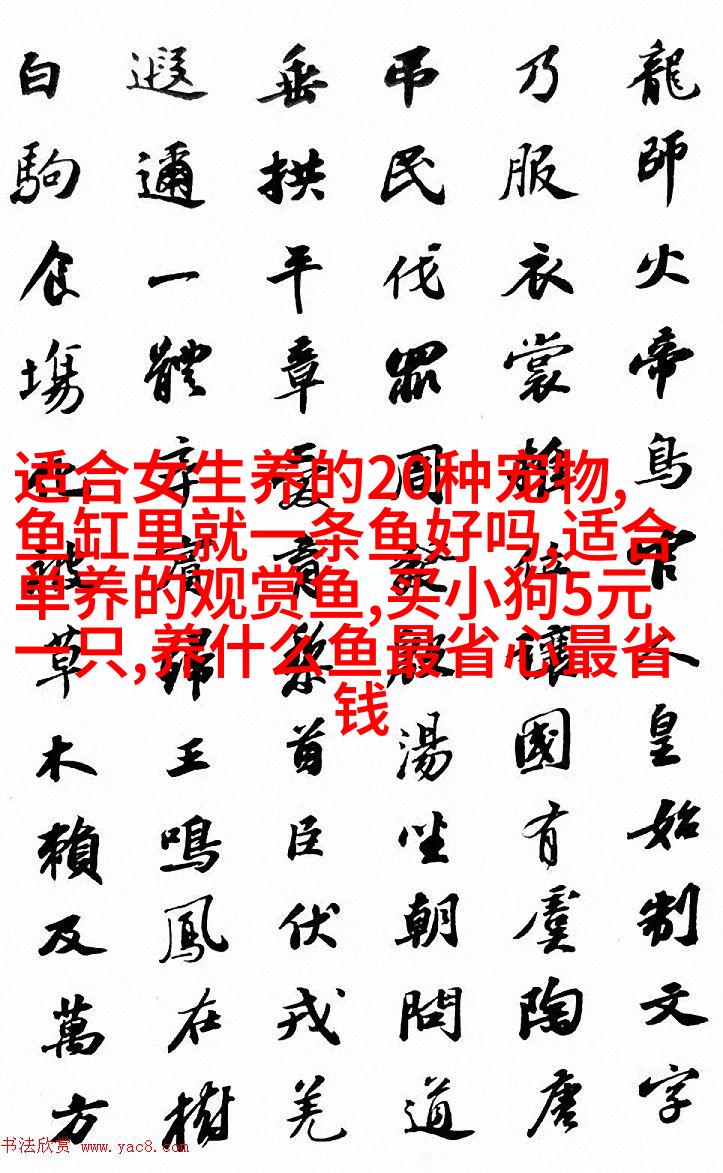 龍師火帝鳥官人皇始制文字
乃服衣裳推位讓國有虞陶唐
吊民伐罪周發殷湯坐朝問道
垂拱平章愛育黎首臣伏戎羌
遐邇一體率賓歸王鳴鳳在樹
白駒食塲化被草木賴及萬方
适合女生养的20种宠物,
鱼缸里就一条鱼好吗,适合
单养的观赏鱼,买小狗5元
一只,养什么鱼最省心最省
钱
书法欣赏 www.yac8.com